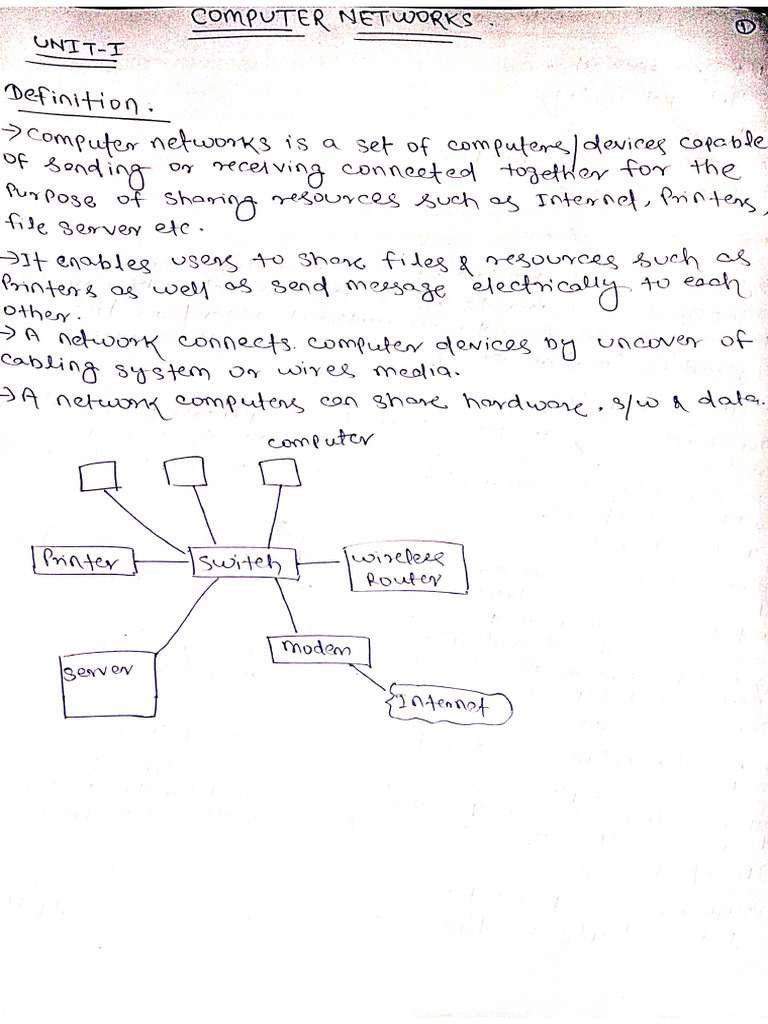 COMPUTER NETWORKS.
1
UNIT-I
Definition.
→ Computer networks is a set of computers/devices capable
of sending or receiving connected together for the
Purpose of sharing resources such as Internet, Printers,
file server etc.
→ It enables users to share files & resources such as
Printers as well as send message electrically to each
other.
→ A network connects computer devices by uncover of
cabling system or wires media.
→ A network computers can share hardware, s/w & data.
computer
Printer
Switch
wireless
Router
modem
Server
Internet